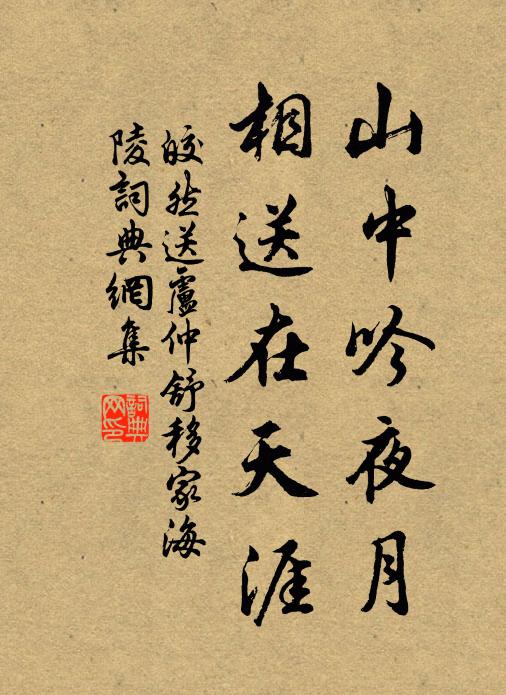 山中吟夜月
相送在天涯
皎然送盧仲舒移家海
陵詞典網集
詞典
网印